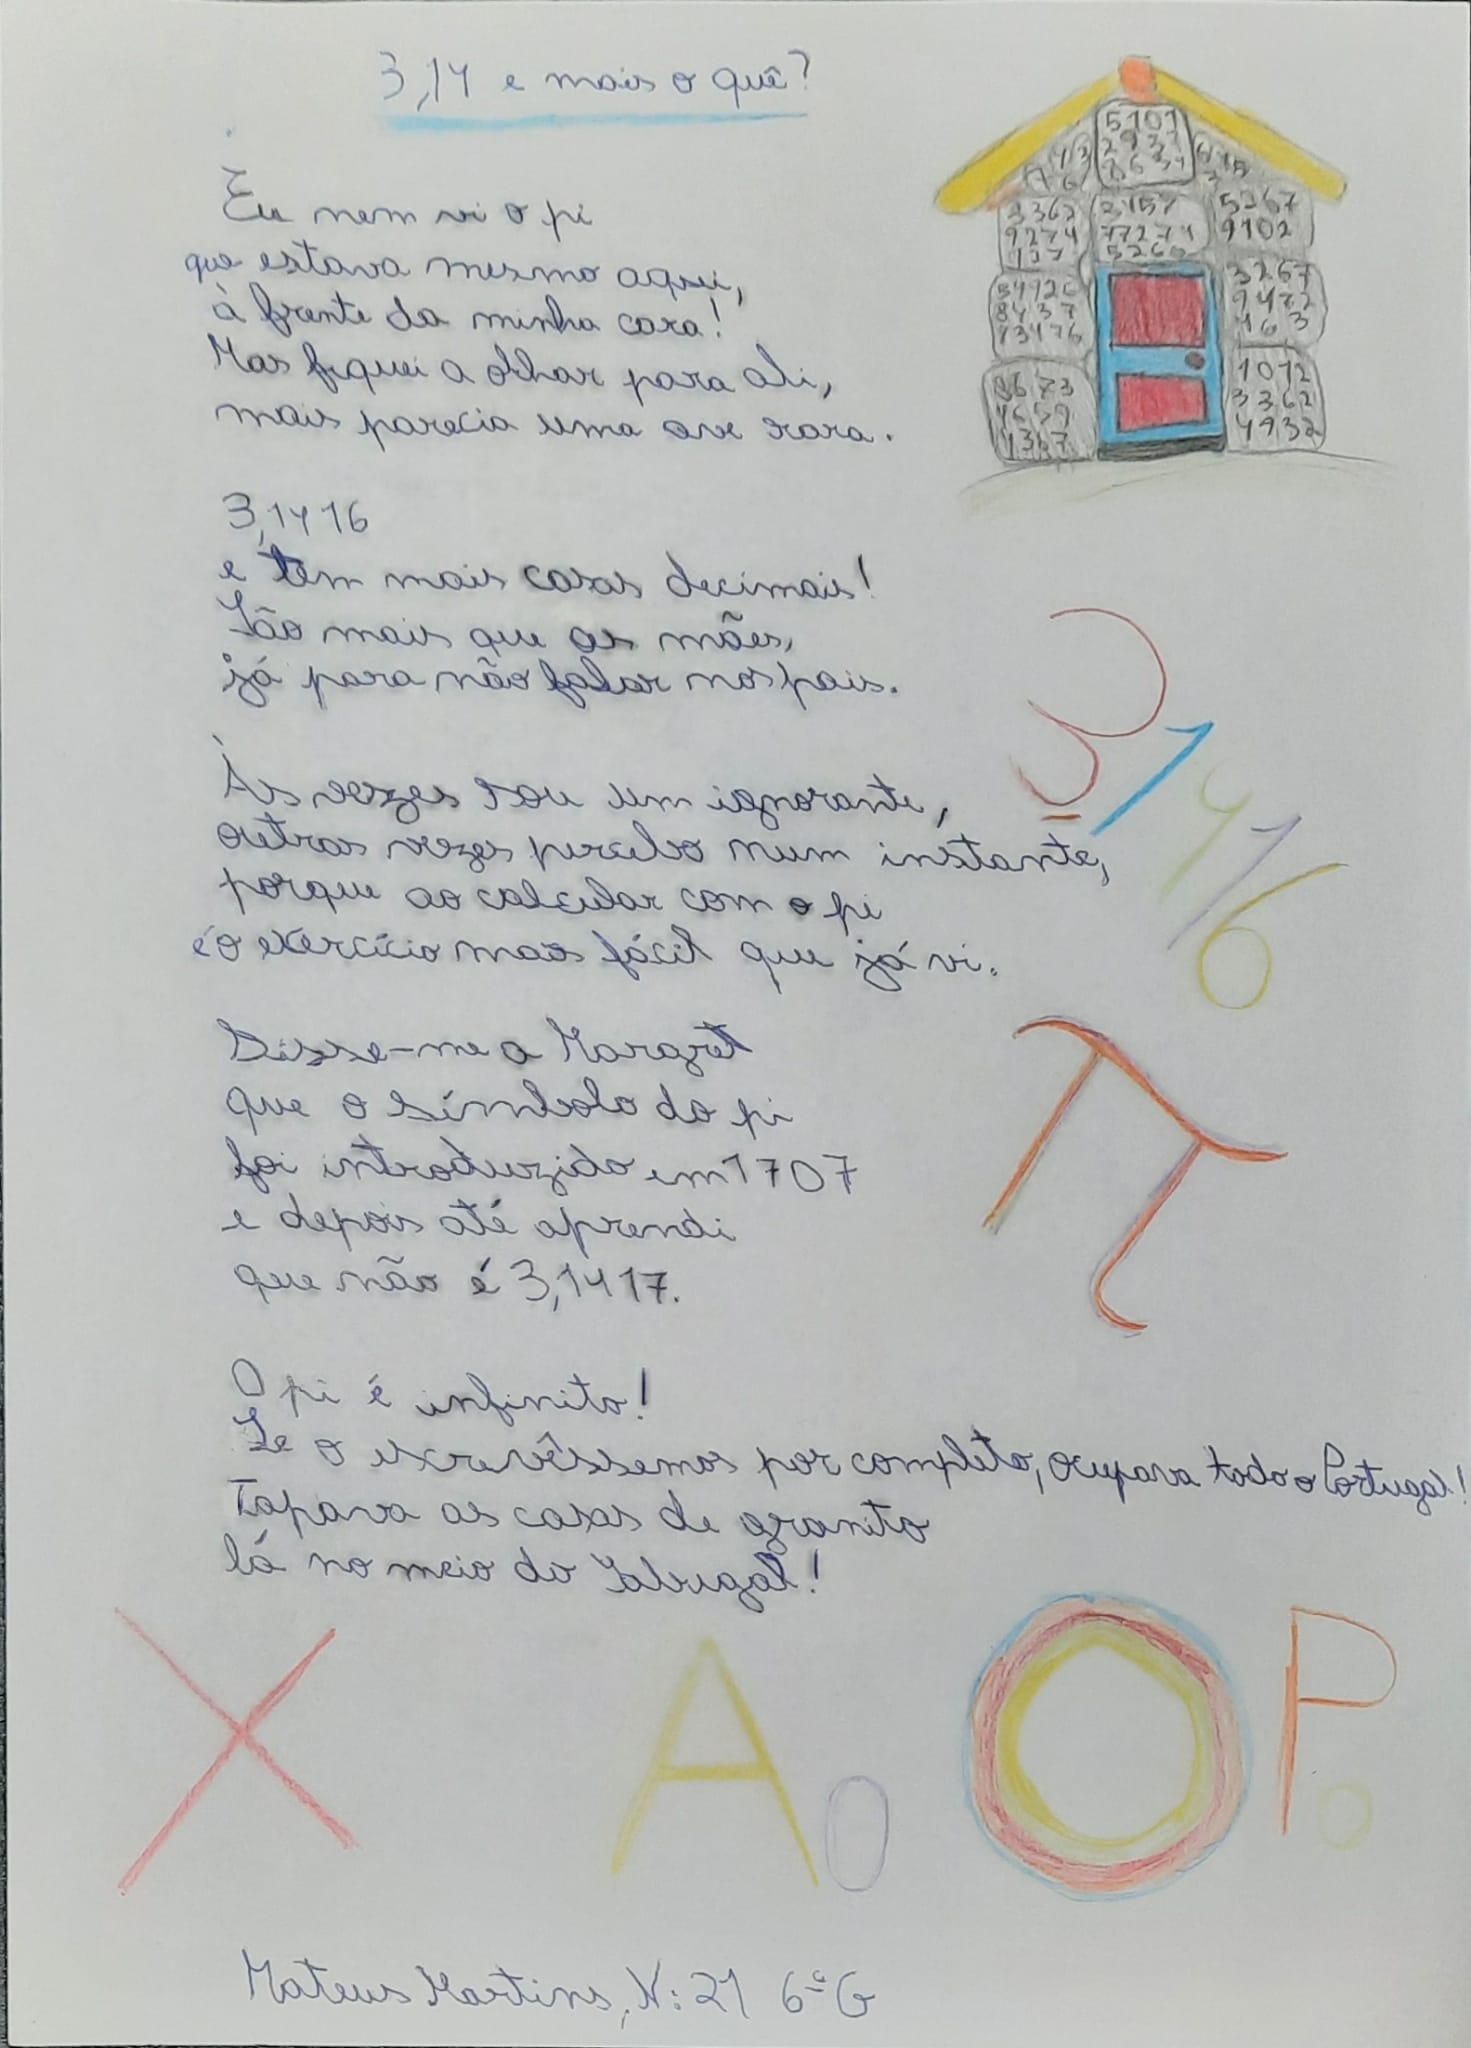 3,14 e mais o quê?
Eu nem vi o pi
que estava mesmo aqui,
à frente da minha cara!
Mas fiquei a olhar para ali,
mais parecia uma ave rara.
3,1416
e têm mais casas decimais!
São mais que as mães,
já para não falar nos pais.
Às vezes sou um ignorante,
outras vezes percebo num instante,
porque ao calcular com o pi
é o exercício mais fácil que já vi.
Disse-me a Margret
que o símbolo do pi
foi introduzido em 1707
e depois até aprendi
que não é 3,1417.
O pi é infinito!
Se o escrevêssemos por completo, ocupava todo o Portugal!
Tapava as casas de granito
lá no meio do Sabugal!
5101
2937
8634
3362
9274
3457
77274
5260
5267
9102
54926
8437
73476
3267
9472
463
8673
4659
4367
1012
3362
4932
3,1416
π
X A0 O P0
Mateus Martins, N: 21 6º G